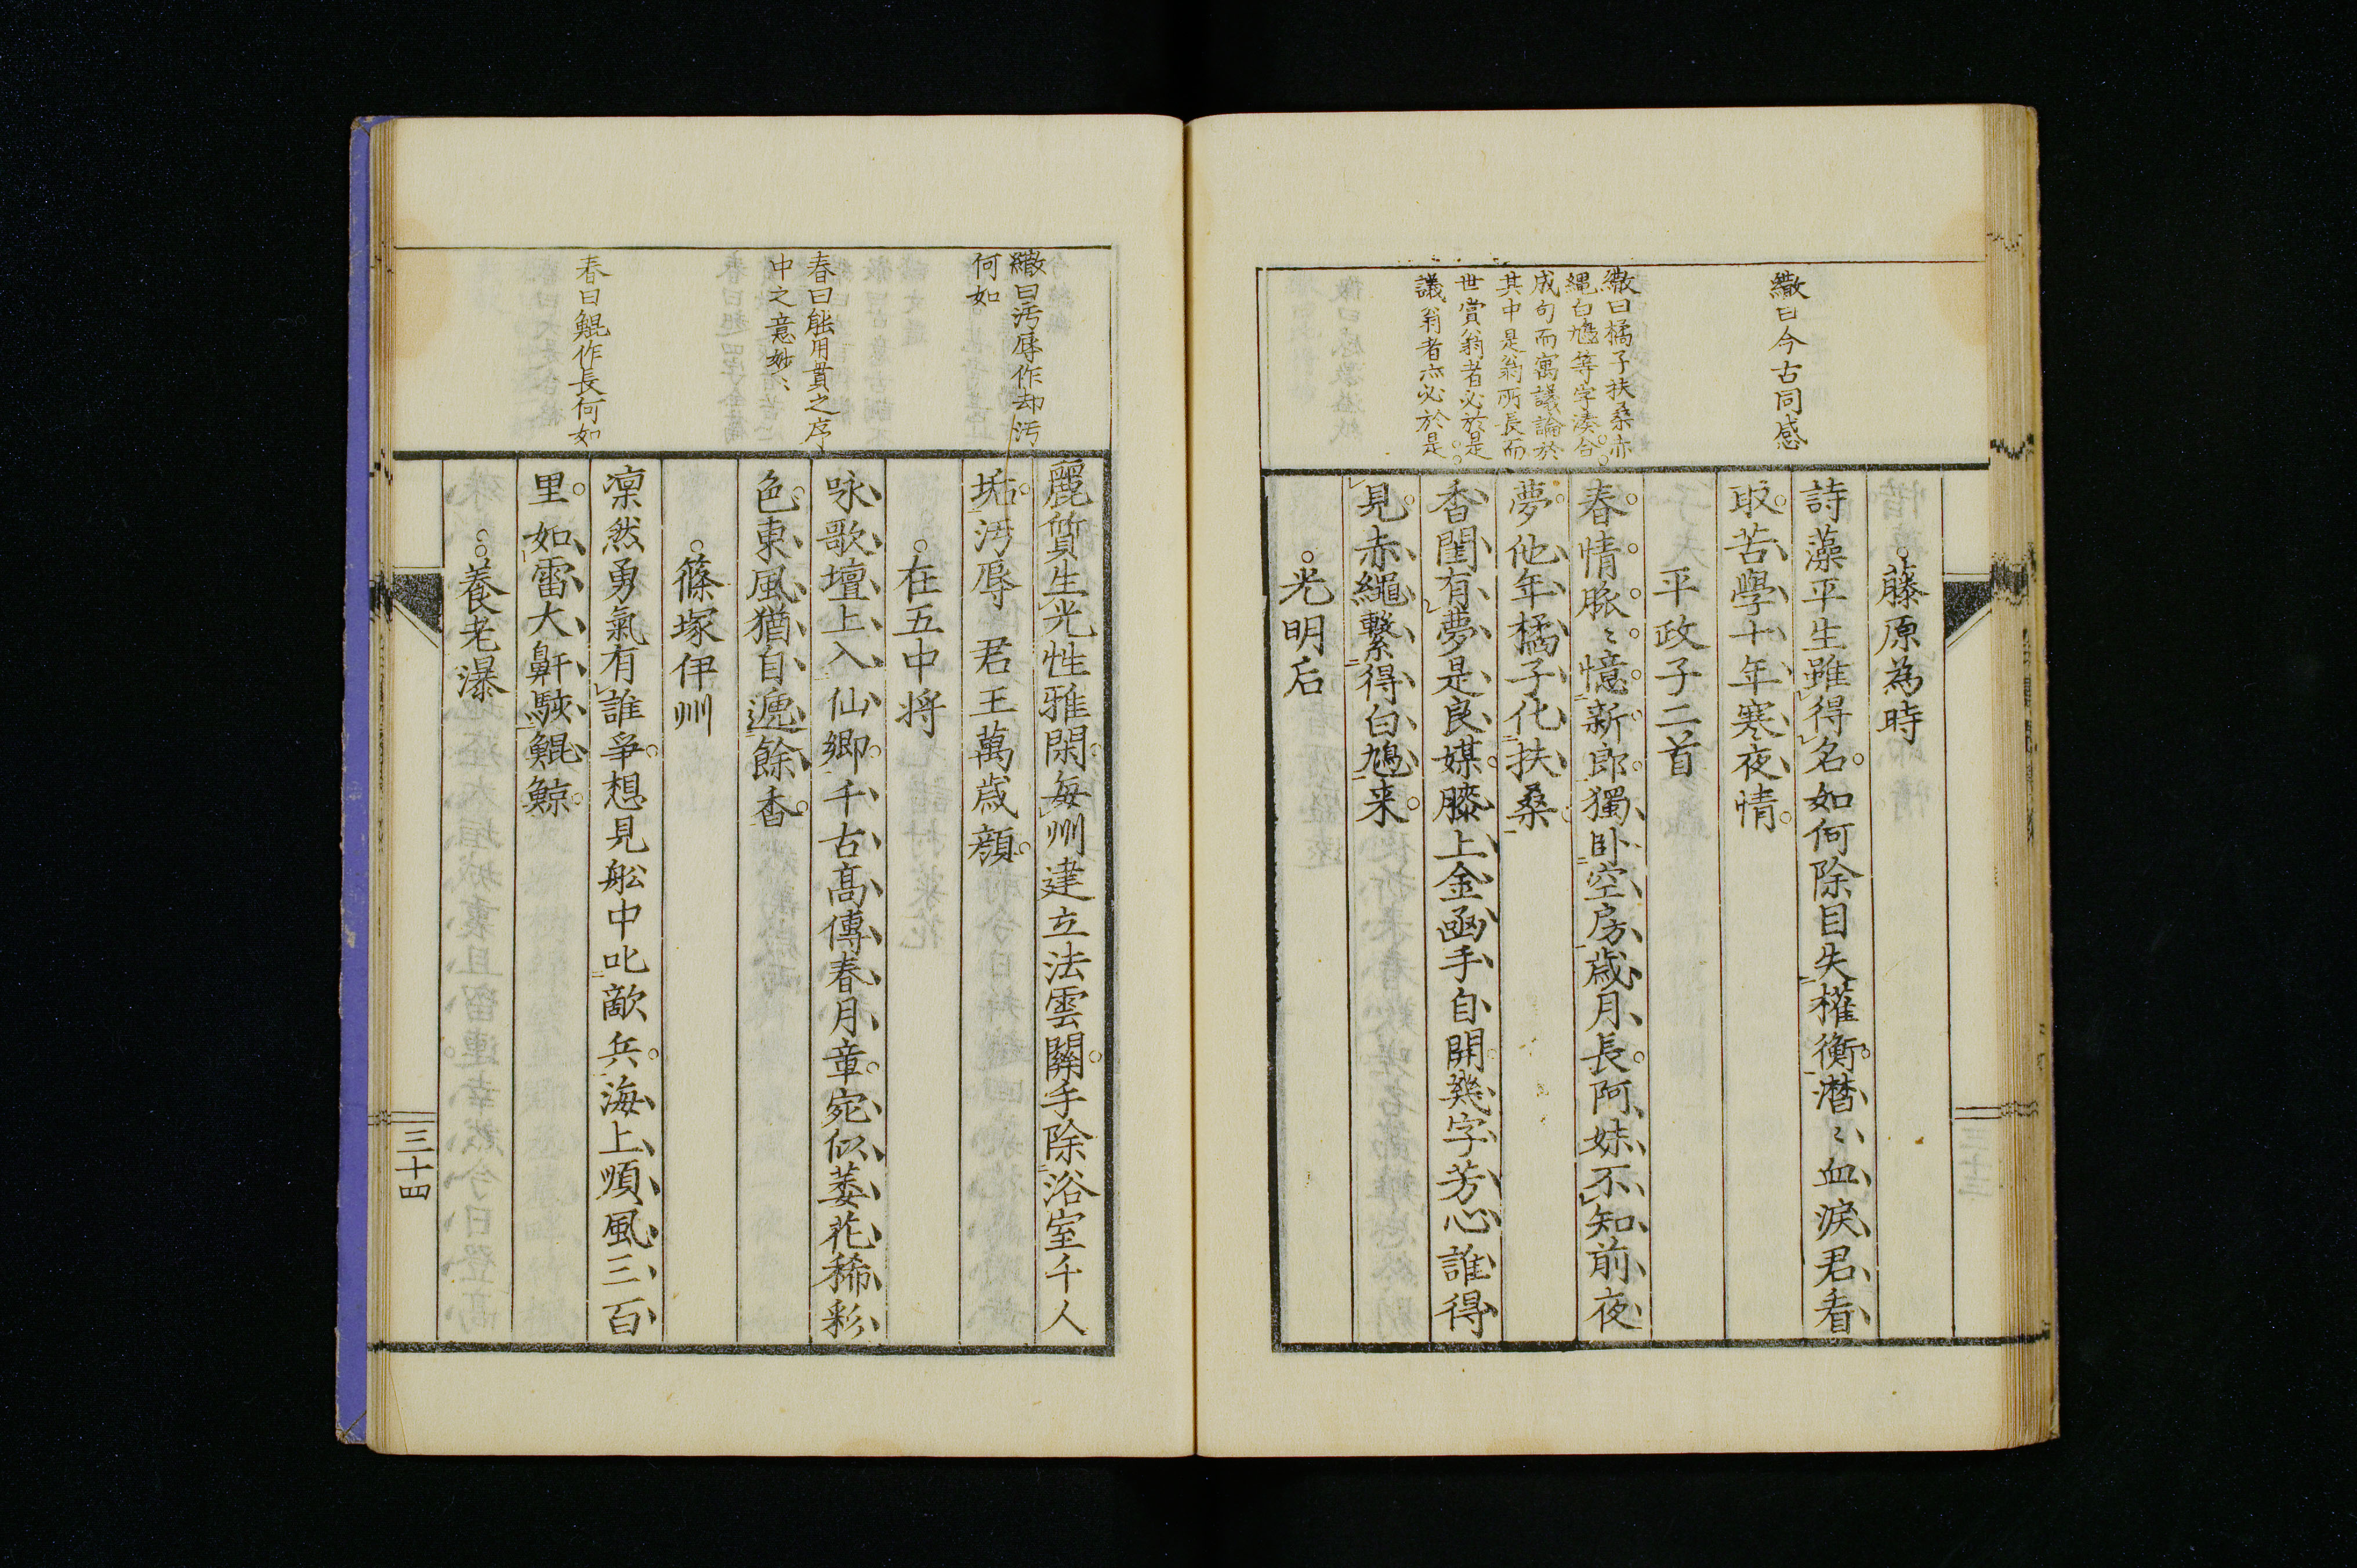 繖曰今古同感
繖曰橘子扶桑赤
繩白鳩等字湊合
成句而寓議論於
其中是翁所長而
世賞翁者必於是
議翁者亦必於是
藤原為時
詩藻平生雖得名如何除目失權衡濳〻血淚君看
取苦學十年寒夜情
平政子二首
春情脈〻憶新郎獨臥空房歲月長阿妹不知前夜
夢他年橘子化扶桑
香閨有夢是良媒膝上金函手自開幾字芳心誰得
見赤繩繫得白鳩来
光明后
繖曰汚辱作却汚
何如
春曰能用貫之序
中之意妙〻
春曰鯤作長何如
麗質生光性雅閑每州建立法雲關手除浴室千人
垢汚辱君王萬歲顏
在五中将
咏歌壇上入仙鄉千古高傳春月章宛似萎花稀彩
色東風猶自遞餘香
篠塚伊州
凜然勇氣有誰爭想見舩中叱敵兵海上順風三百
里如雷大鼾駭鯤鯨
養老瀑
三十四